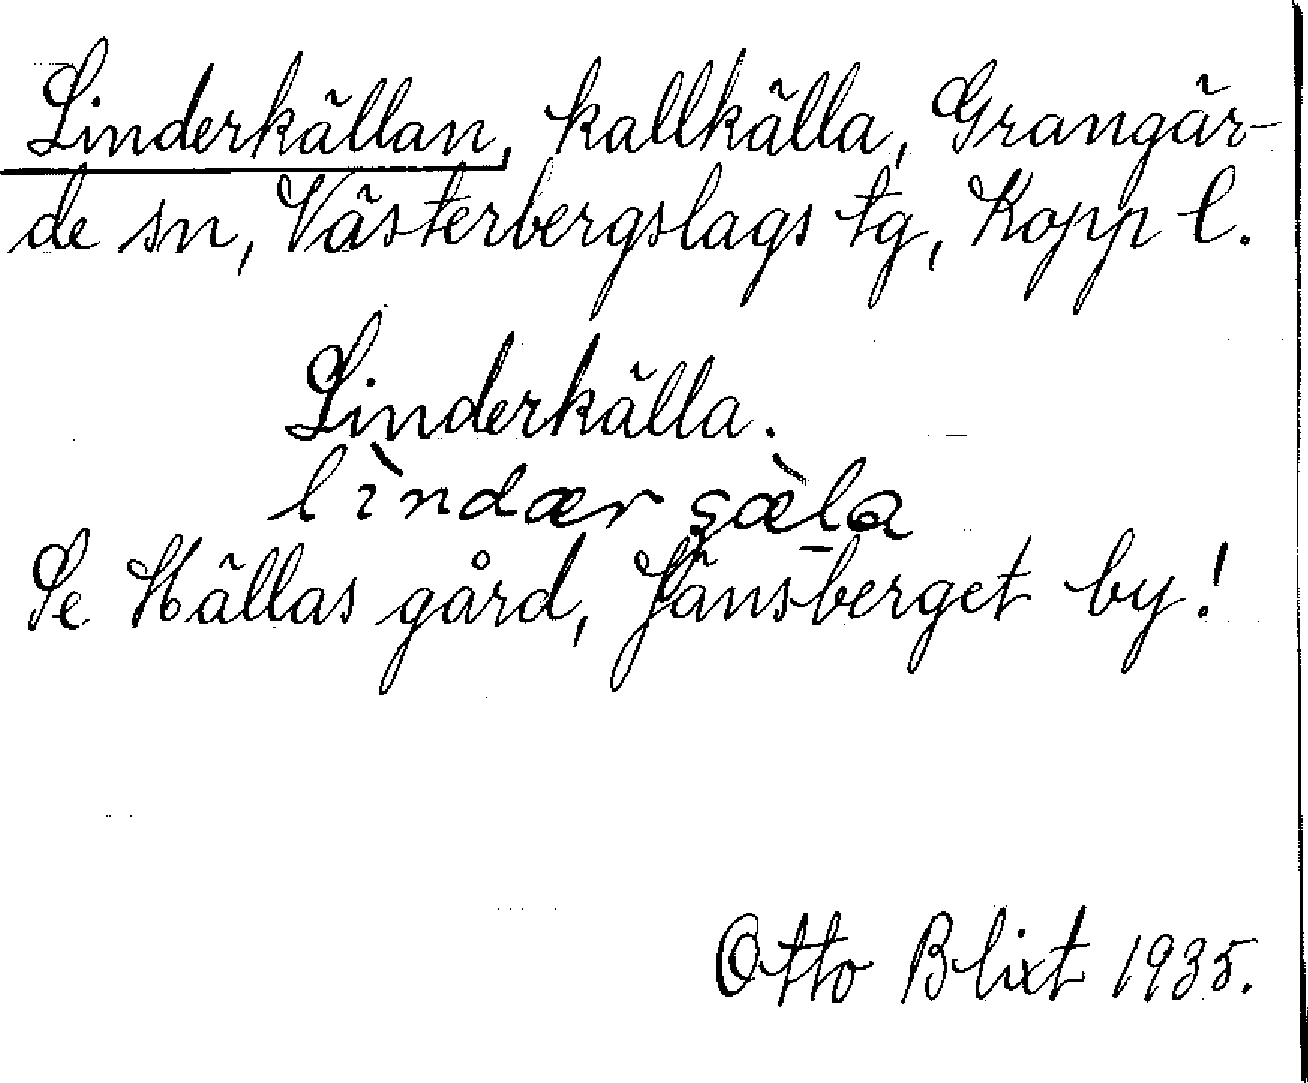 Linderkällan, kallkälla, Grangär-
de sn, Västerbergslags tg, Kopp l.
Linderkälla.
lìndær ςæ̀la
Se Hällas gård, Jänsberget by!
Otto Blixt 1935.